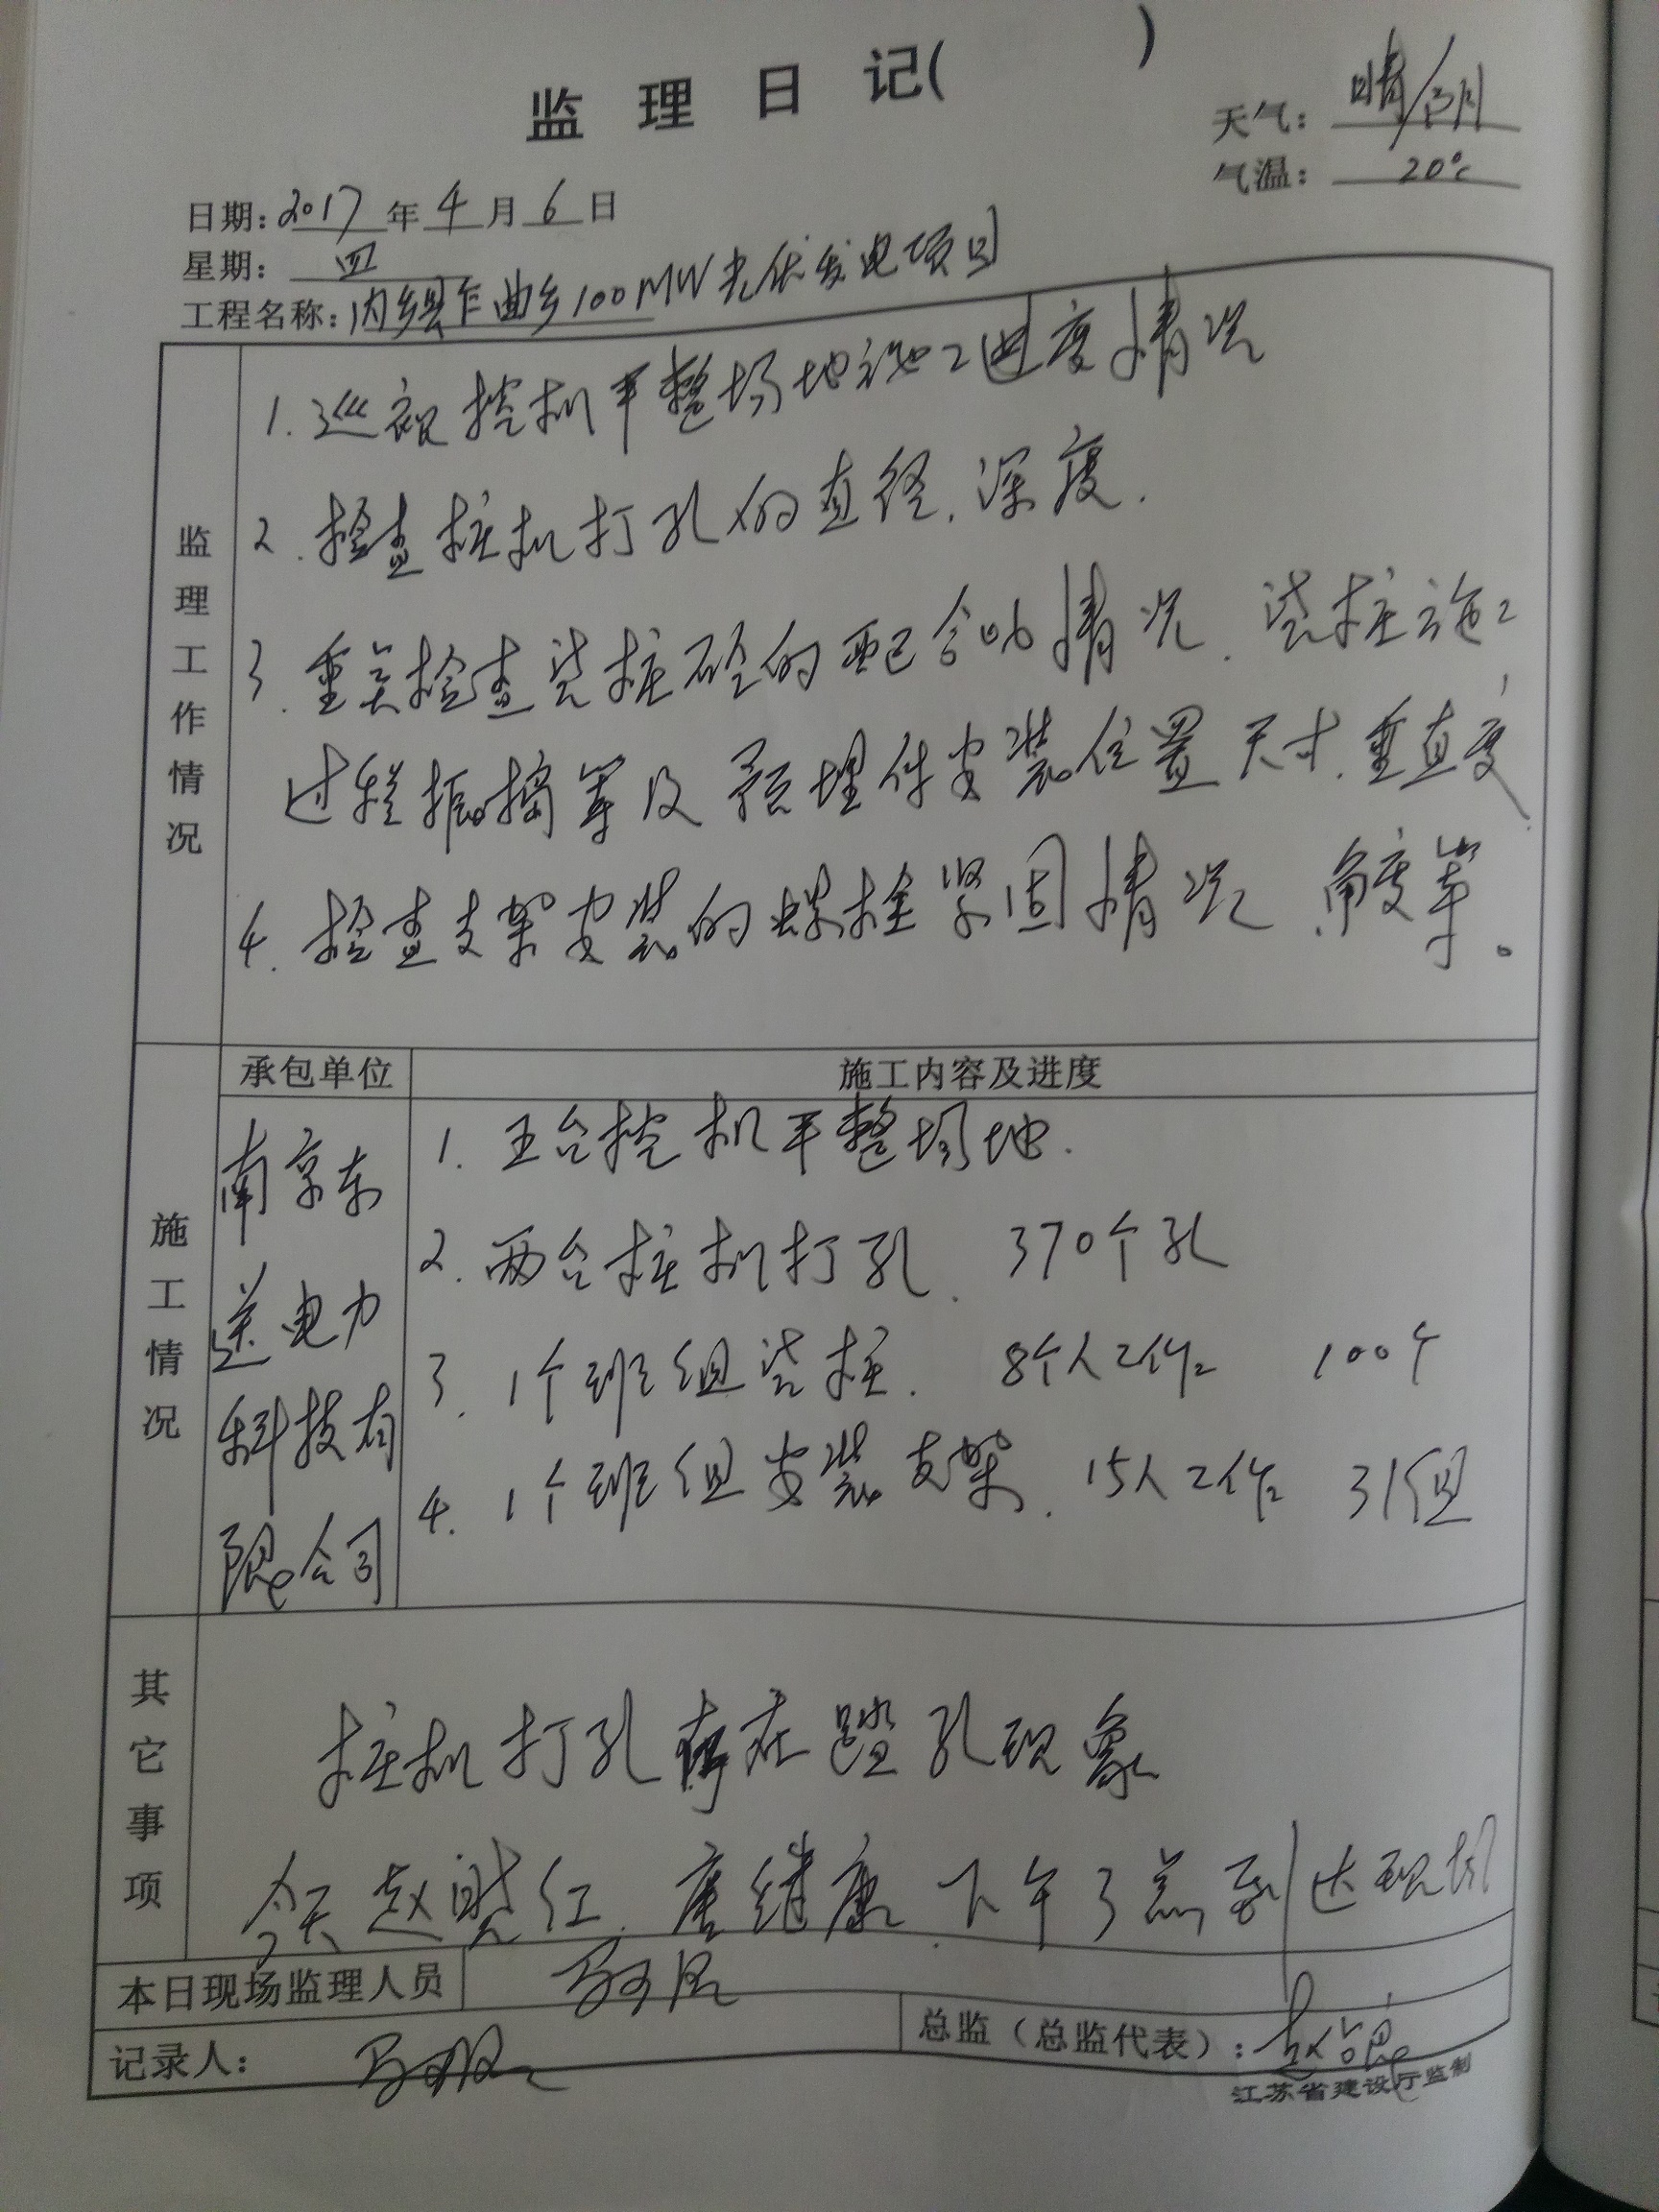 监 理 日 记( )
天气: 晴/阴
气温: 20℃
日期: 2017 年 4 月 6 日
星期: 四
工程名称: 内乡县乍曲乡100MW光伏发电项目
监理工作情况
1. 巡视挖机平整场地施工进度情况
2. 检查桩机打孔的直径、深度.
3. 重点检查浇桩砼的配合比情况、浇桩施工
过程振捣等及预埋件安装位置尺寸、垂直度,
4. 检查支架安装的螺栓紧固情况、角度等。
施工情况
承包单位 施工内容及进度
南京东
送电力
科技有
限公司
1. 五台挖机平整场地.
2. 两台桩机打孔. 370个孔
3. 1个班组浇桩. 8个人工作 100个
4. 1个班组安装支架. 15人工作 31组
其它事项
桩机打孔存在蹋孔现象
今天赵 红、唐继康 下午3点到达现场
本日现场监理人员
记录人:
总监(总监代表):
江苏省建设厅监制